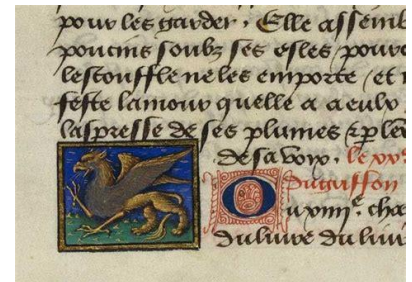 pour les garder . Elle assemb
poucins soubz ses esles pour
lestouffle ne les emporte / et
feste lamour quelle a a eulx
laspresse de ses plumes & p le
de sa voix . le xv
Du griffon
u xiiiie. cha
du livre du liv